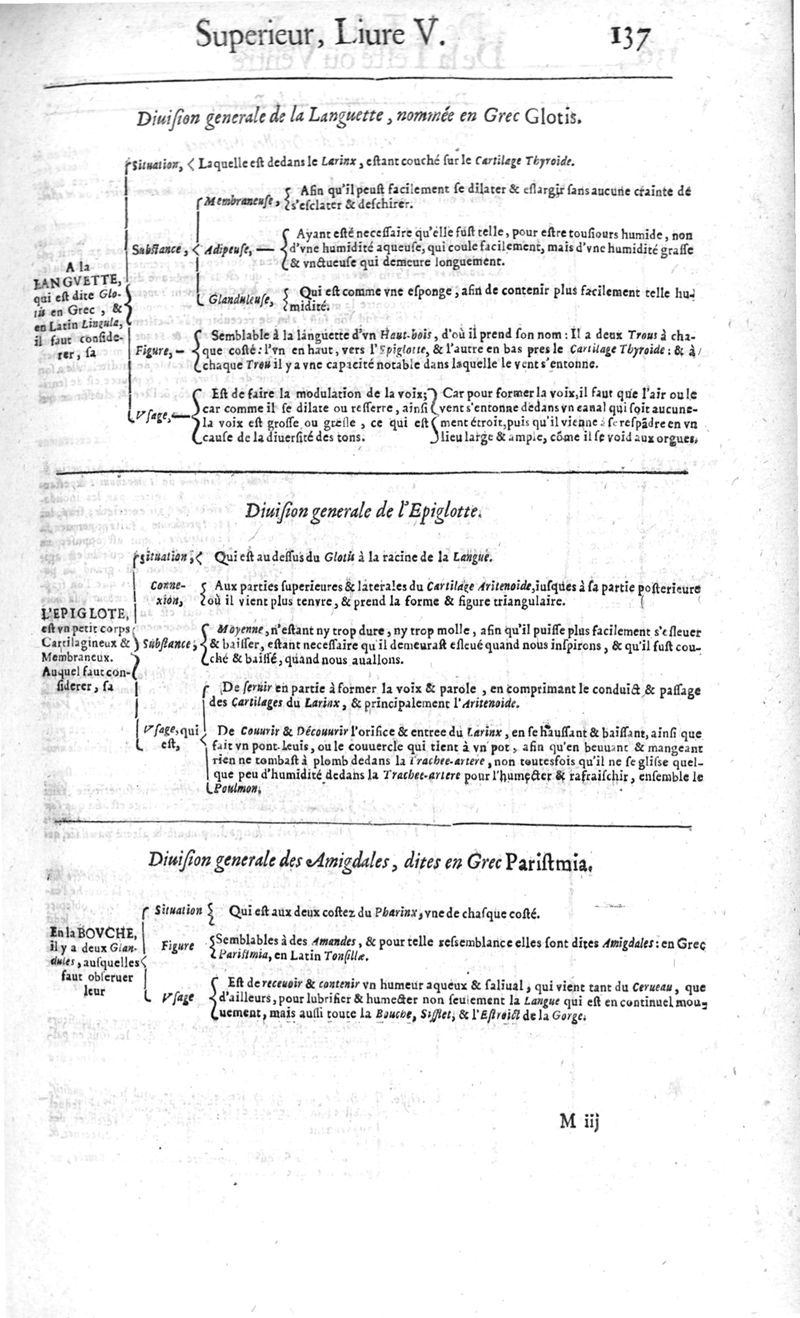 Superieur, Liure V. 137
Diuiſion generale de la Languette, nommée en Grec Glotis.
A la
LANGVETTE,
qui eſt dite Glo-
tis en Grec, &
en Latin Lingula,
il faut conſide-
rer, ſa
Situation, Laquelle eſt dedans le Larinx, eſtant couché ſur le Cartilage Thyroide.
Subſtance,
Membraneuſe, Afin qu'il peuſt facilement ſe dilater & eſlargir ſans aucune crainte de
s'eſclater & deſchirer.
Adipeuſe, Ayant eſté neceſſaire qu'elle fuſt telle, pour eſtre touſiours humide, non
d'vne humidité aqueuſe, qui coule facilement, mais d'vne humidité graſſe
& vnctueuſe qui demeure longuement.
Glanduleuſe, Qui eſt comme vne eſponge, afin de contenir plus facilement telle hu-
midité.
Figure, Semblable à la languette d'vn Haut-bois, d'où il prend ſon nom: Il a deux Trous à cha-
que coſté: l'vn en haut, vers l'Epiglotte, & l'autre en bas pres le Cartilage Thyroide: & à
chaque Trou il y a vne capacité notable dans laquelle le vent s'entonne.
Vſage, Eſt de faire la modulation de la voix;
car comme il ſe dilate ou reſſerre, ainſi
la voix eſt groſſe ou greſle, ce qui eſt
cauſe de la diuerſité des tons.
Car pour former la voix, il faut que l'air ou le
vent s'entonne dedans vn canal qui ſoit aucune-
ment étroit, puis qu'il vienne à ſe reſpãdre en vn
lieu large & ample, cõme il ſe void aux orgues.
Diuiſion generale de l'Epiglotte.
L'EPIGLOTE,
eſt vn petit corps
Cartilagineux &
Membraneux.
Auquel faut con-
ſiderer, ſa
Situation, Qui eſt au deſſus du Glotis à la racine de la Langue.
Conne-
xion,
Aux parties ſuperieures & laterales du Cartilage Aritenoide, iuſques à ſa partie poſterieure
où il vient plus tenvre, & prend la forme & figure triangulaire.
Subſtance, Moyenne, n'eſtant ny trop dure, ny trop molle, afin qu'il puiſſe plus facilement s'eſleuer
& baiſſer, eſtant neceſſaire qu'il demeuraſt eſleué quand nous inſpirons, & qu'il fuſt cou-
ché & baiſſé, quand nous auallons.
Vſage, qui
eſt,
De ſeruir en partie à former la voix & parole, en comprimant le conduict & paſſage
des Cartilages du Larinx, & principalement l'Aritenoide.
De Couurir & Découurir l'orifice & entree du Larinx, en ſe hauſſant & baiſſant, ainſi que
fait vn pont-leuis, ou le couuercle qui tient à vn pot, afin qu'en beuuant & mangeant
rien ne tombaſt à plomb dedans la Trachee-artere, non toutesfois qu'il ne ſe gliſſe quel-
que peu d'humidité dedans la Trachee-artere pour l'humecter & rafraiſchir, enſemble le
Poulmon.
Diuiſion generale des Amigdales, dites en Grec Pariſtmia.
En la BOVCHE,
il y a deux Glan-
dules, auſquelles
faut obſeruer
leur
Situation Qui eſt aux deux coſtez du Pharinx, vne de chaſque coſté.
Figure Semblables à des Amandes, & pour telle reſſemblance elles ſont dites Amigdales: en Grec
Pariſtmia, en Latin Tonſillæ.
Vſage Eſt de receuoir & contenir vn humeur aqueux & ſaliual, qui vient tant du Cerueau, que
d'ailleurs, pour lubrifier & humecter non ſeulement la Langue qui eſt en continuel mou-
uement, mais auſſi toute la Bouche, Sifflet, & l'Eſtroict de la Gorge.
M iij